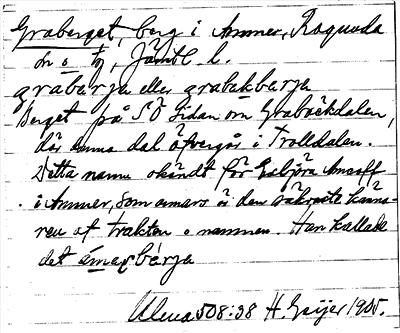 Graberget, berg i Ammer, Ragunda
sn o tg, Jämtl. l.
grabærja eller grabækbærja
Berget på SÖ sidan om Grabäckdalen,
där denna dal övergår i Trolldalen.
Detta namn okändt för Esbjörn
i Ammer, som annars är den säkraste känna-
ren af trakten o namnen. Han kallade
det ámerbærja
508:38 H. Geijer 1905.